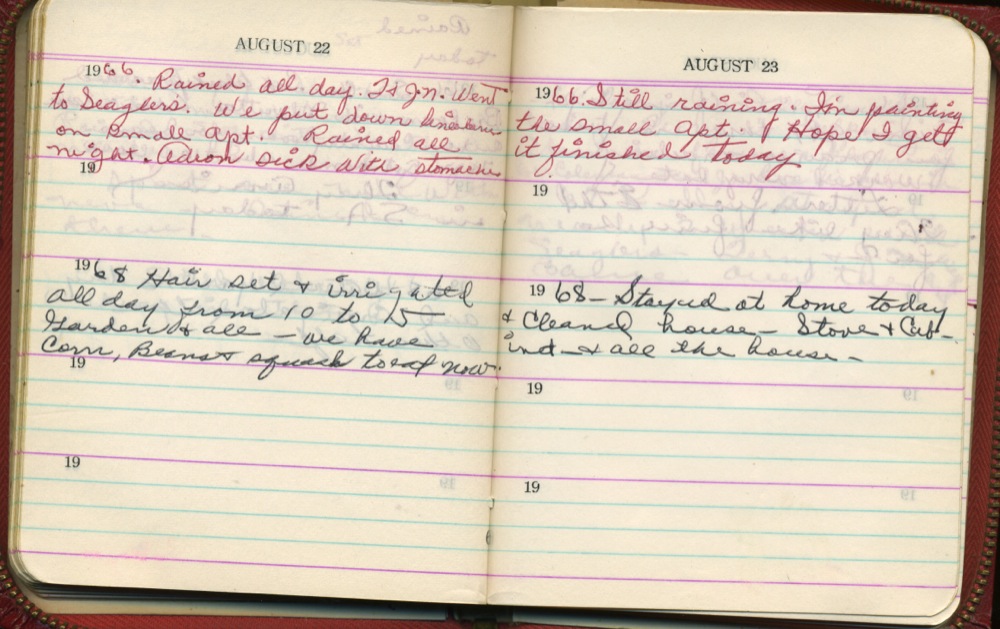 AUGUST 22
1966. Rained all day. I & J.N. Went
to Seaglers. We put down
on small apt. Rained all
night. Adron sick with stomache
19
1968 Hair set & irrigated
all day from 10 to 5 —
Garden & all — we have
Corn, Beans & squash to eat now.
19
19
AUGUST 23
1966. Still raining. I'm painting
the small apt. Hope I get
it finished today
19
1968 — Stayed at home today
& Cleaned house — Stove & Cab-
inet — & all the house —
19
19